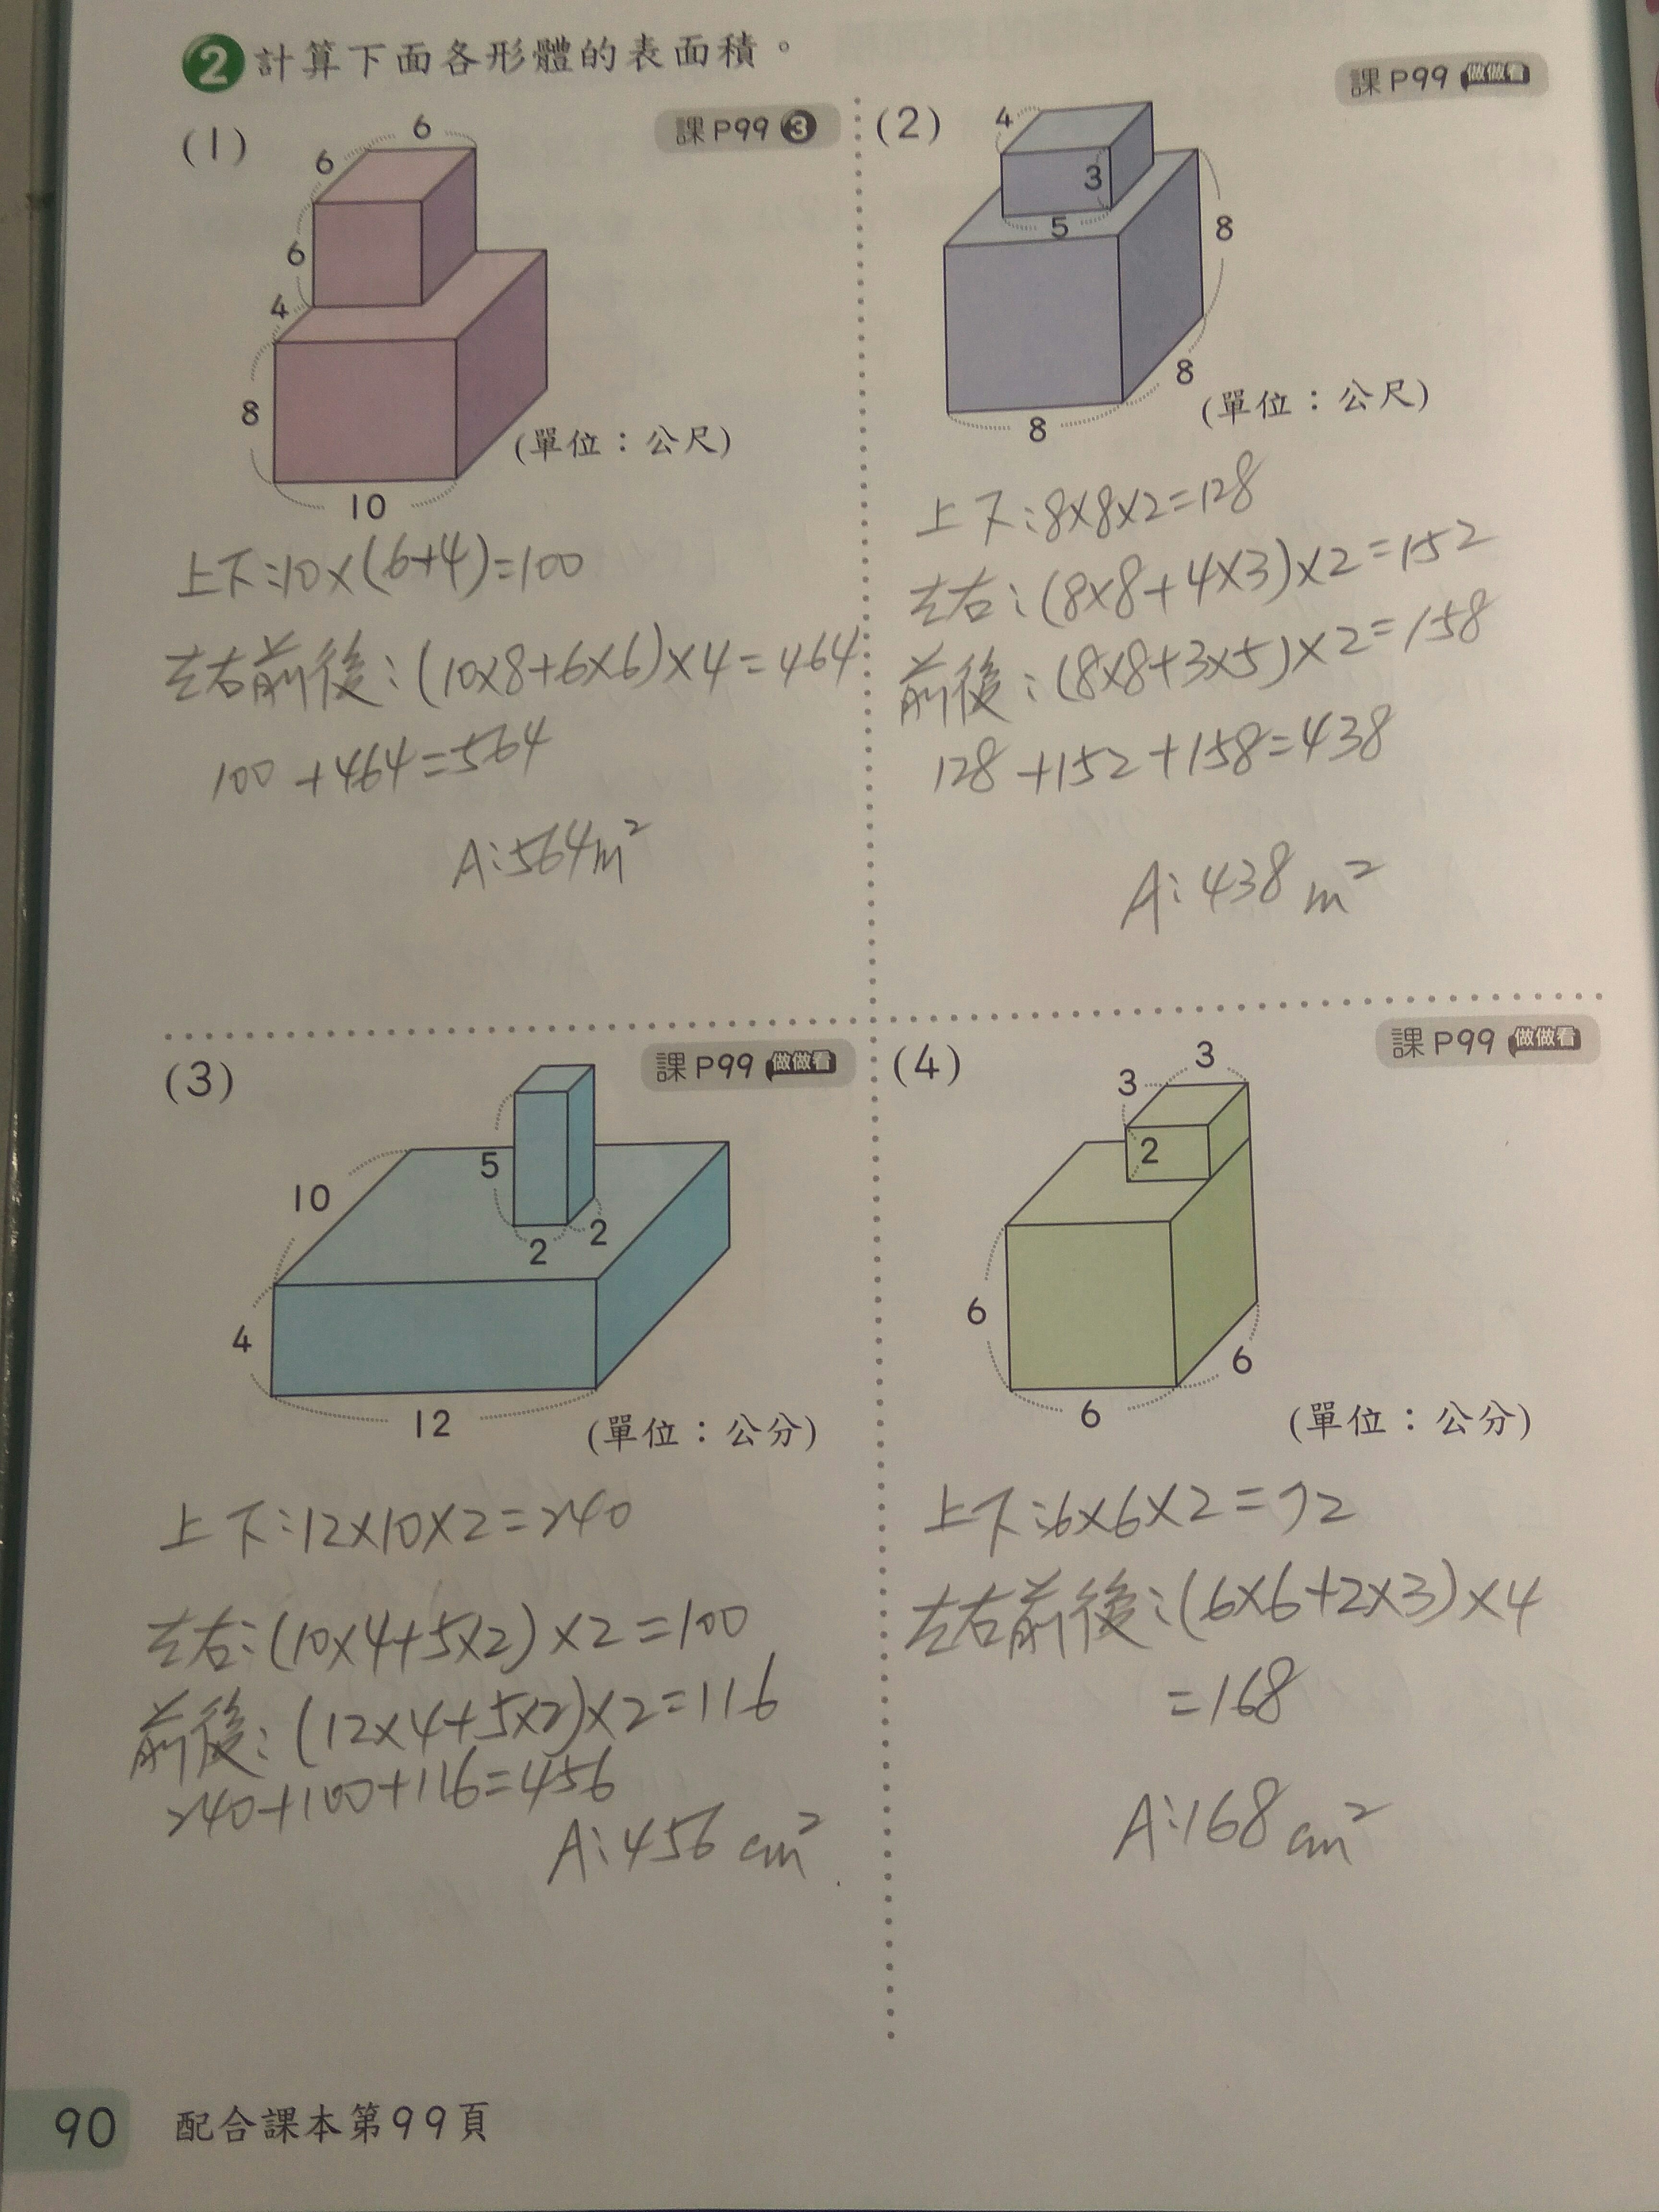 2 計算下面各形體的表面積。
課P99 做做看
(1)
課P99 3
6
6
6
4
8
10
(單位：公尺)
上下:10×(6+4)=100
左右前後:(10×8+6×6)×4=464
100+464=564
A:564m²
(2)
4
3
5
8
8
8
(單位：公尺)
上下:8×8×2=128
左右:(8×8+4×3)×2=152
前後:(8×8+3×5)×2=158
128+152+158=438
A:438 m²
(3)
課P99 做做看
10
5
2
2
4
12
(單位：公分)
上下:12×10×2=240
左右:(10×4+5×2)×2=100
前後:(12×4+5×2)×2=116
240+100+116=456
A:456 cm²
(4)
課P99 做做看
3
3
2
6
6
6
(單位：公分)
上下:6×6×2=72
左右前後:(6×6+2×3)×4
=168
A:168 cm²
90 配合課本第99頁